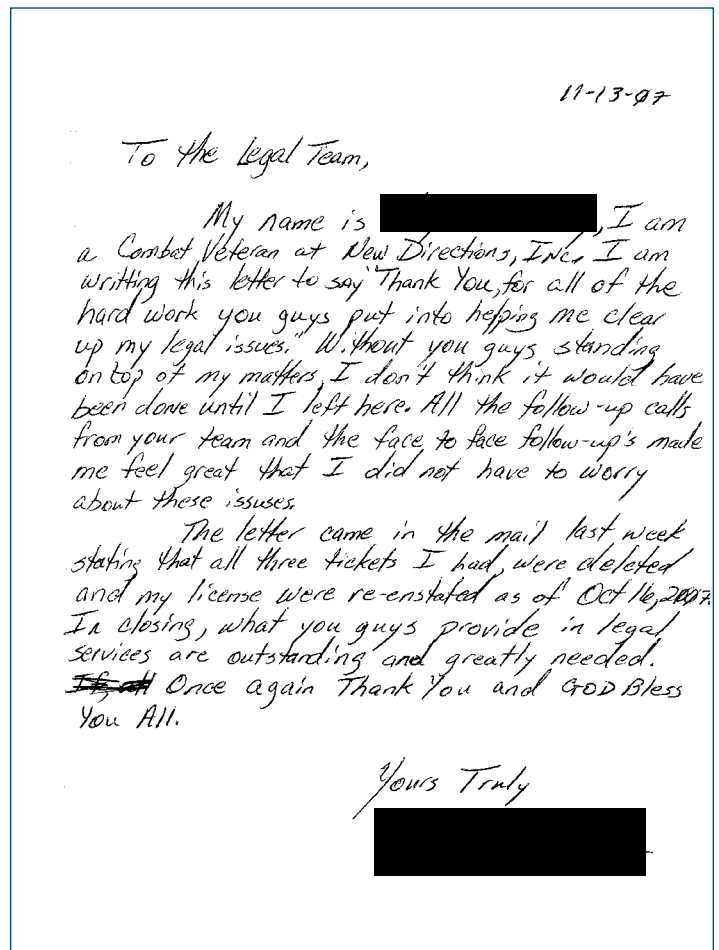 11-13-07
To the Legal Team,
My name is , I am
a Combat Veteran at New Directions, Inc. I am
writting this letter to say "Thank You, for all of the
hard work you guys put into helping me clear
up my legal issues." Without you guys standing
on top of my matters, I don't think it would have
been done until I left here. All the follow-up calls
from your team and the face to face follow-up's made
me feel great that I did not have to worry
about these issuses.
The letter came in the mail last week
stating that all three tickets I had, were deleted
and my license were re-enstated as of Oct 16, 2007.
In closing, what you guys provide in legal
services are outstanding and greatly needed.
Once again Thank You and GOD Bless
You All.
Yours Truly